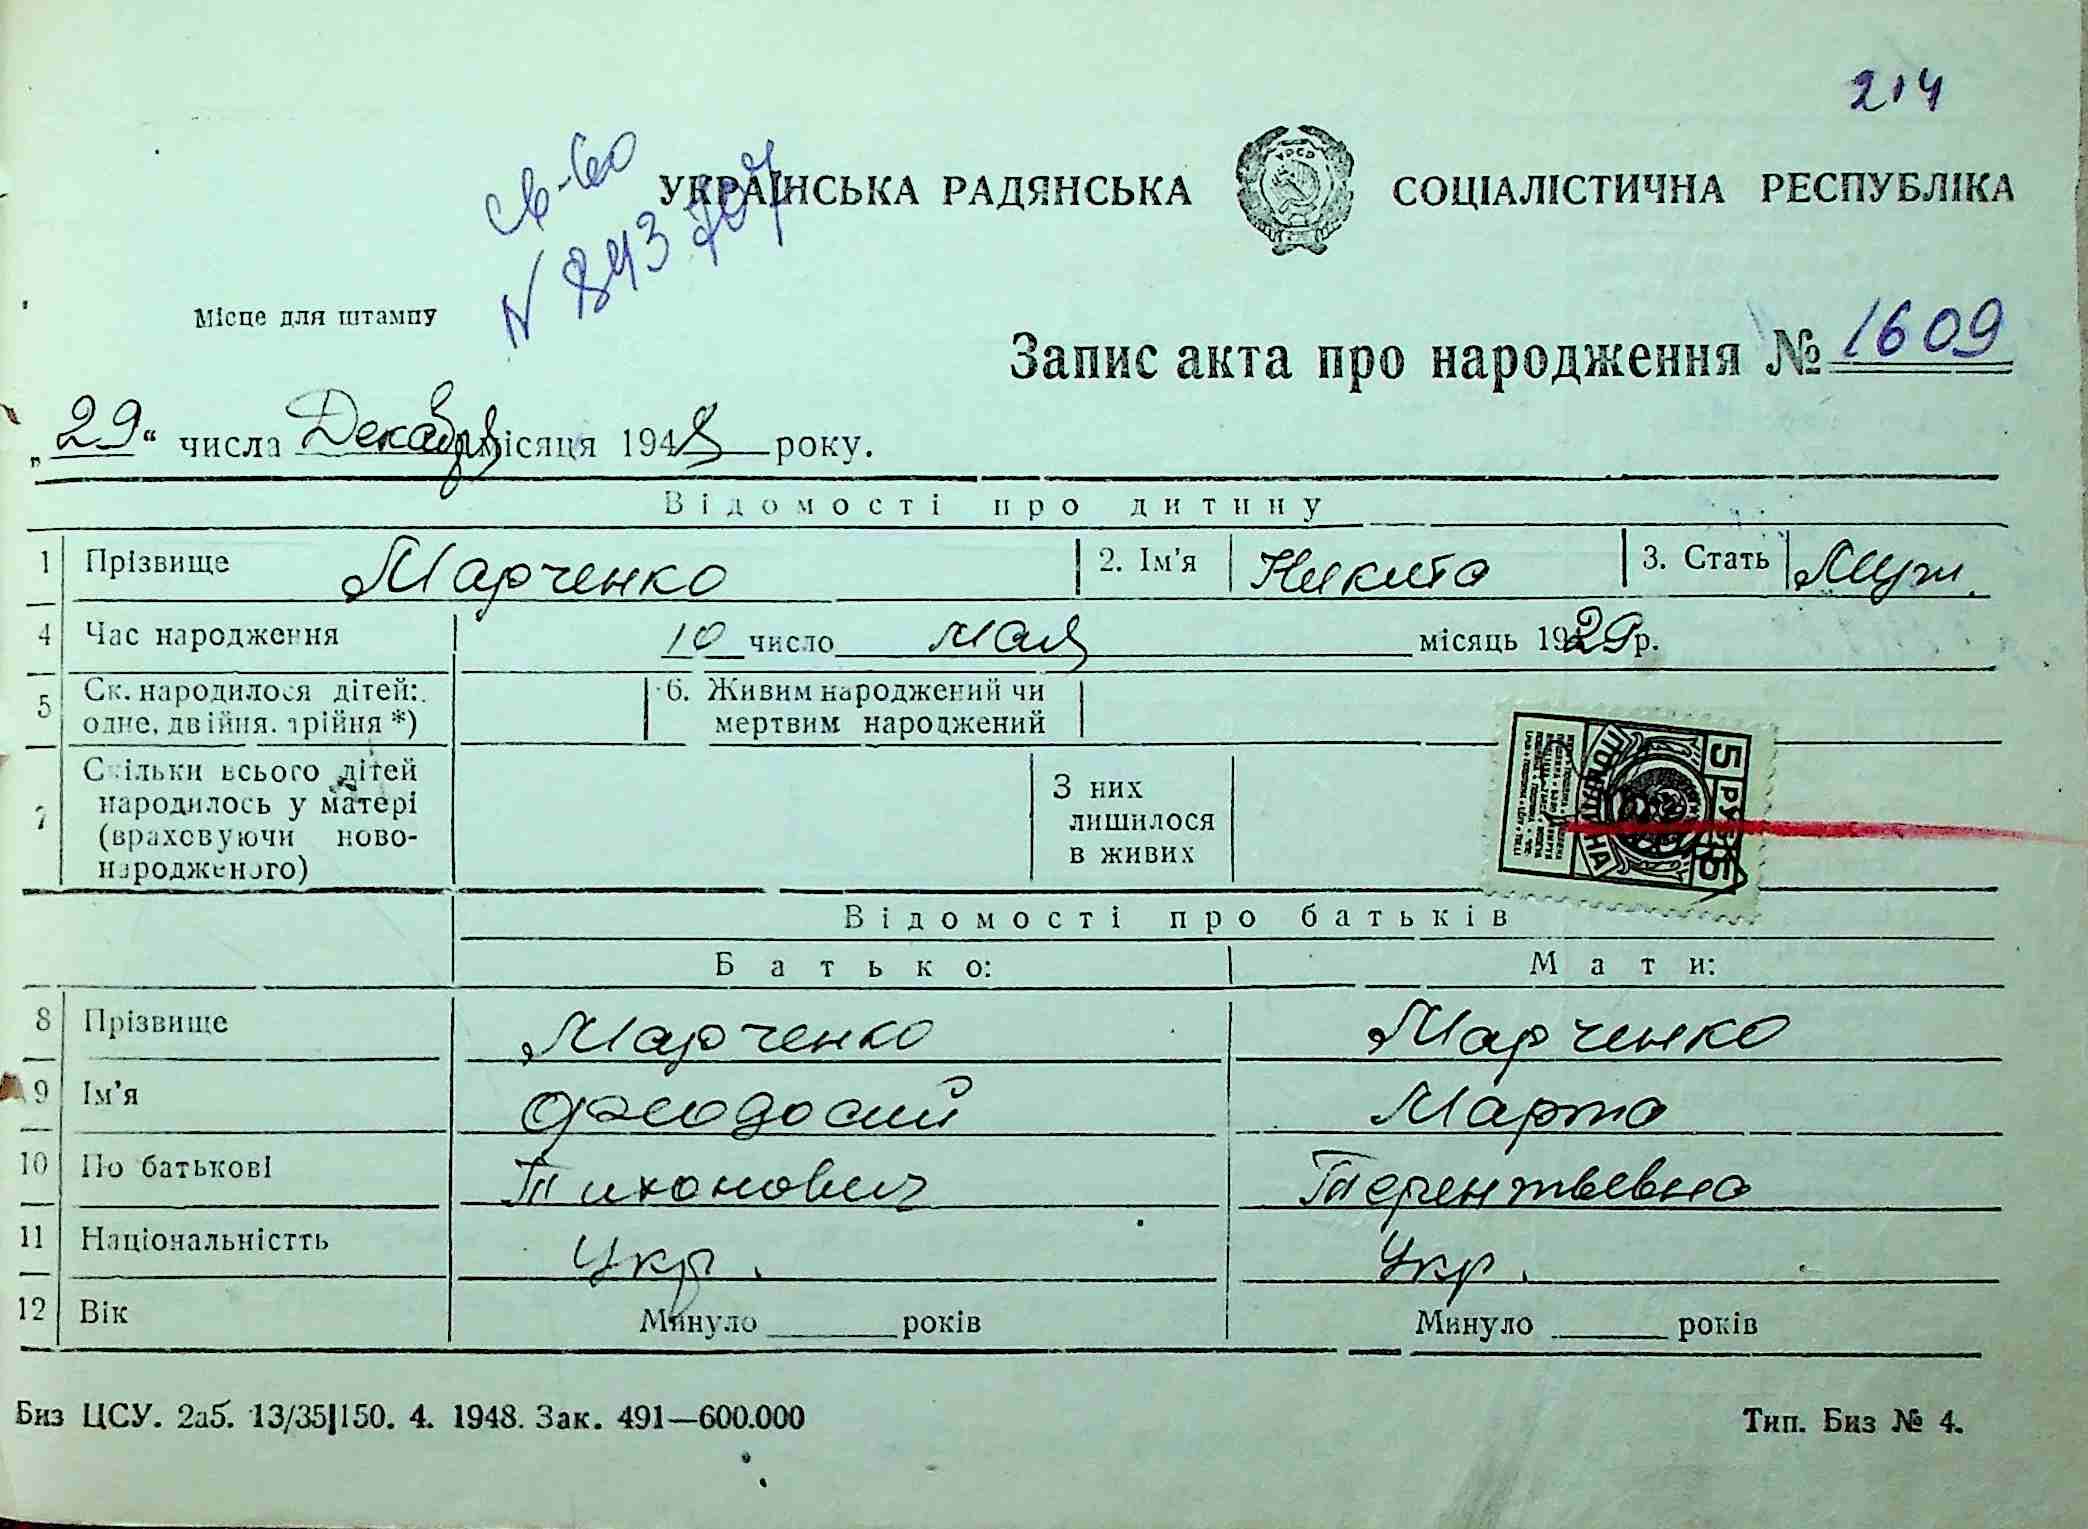 214
св-во
N 843707
УКРАЇНСЬКА РАДЯНСЬКА СОЦІАЛІСТИЧНА РЕСПУБЛІКА
УРСР
Місце для штампу
Запис акта про народження № 1609
„29“ числа Декабря місяця 1948 року.
Відомості про дитину
1 Прізвище Марченко 2. Ім'я Никита 3. Стать Муж.
4 Час народження 10 число мая місяць 1929 р.
5 Ск. народилося дітей: одне, двійня, трійня *) 6. Живим народжений чи мертвим народжений
7 Скільки всього дітей народилось у матері (враховуючи новонародженого) З них лишилося в живих
5 РУБ 5
Відомості про батьків
Батько: Мати:
8 Прізвище Марченко Марченко
9 Ім'я Феодосий Марта
10 По батькові Тихонович Терентьевна
11 Національністть Укр. Укр.
12 Вік Минуло ______ років Минуло ______ років
Биз ЦСУ. 2аб. 13/35|150. 4. 1948. Зак. 491—600.000 Тип. Биз № 4.